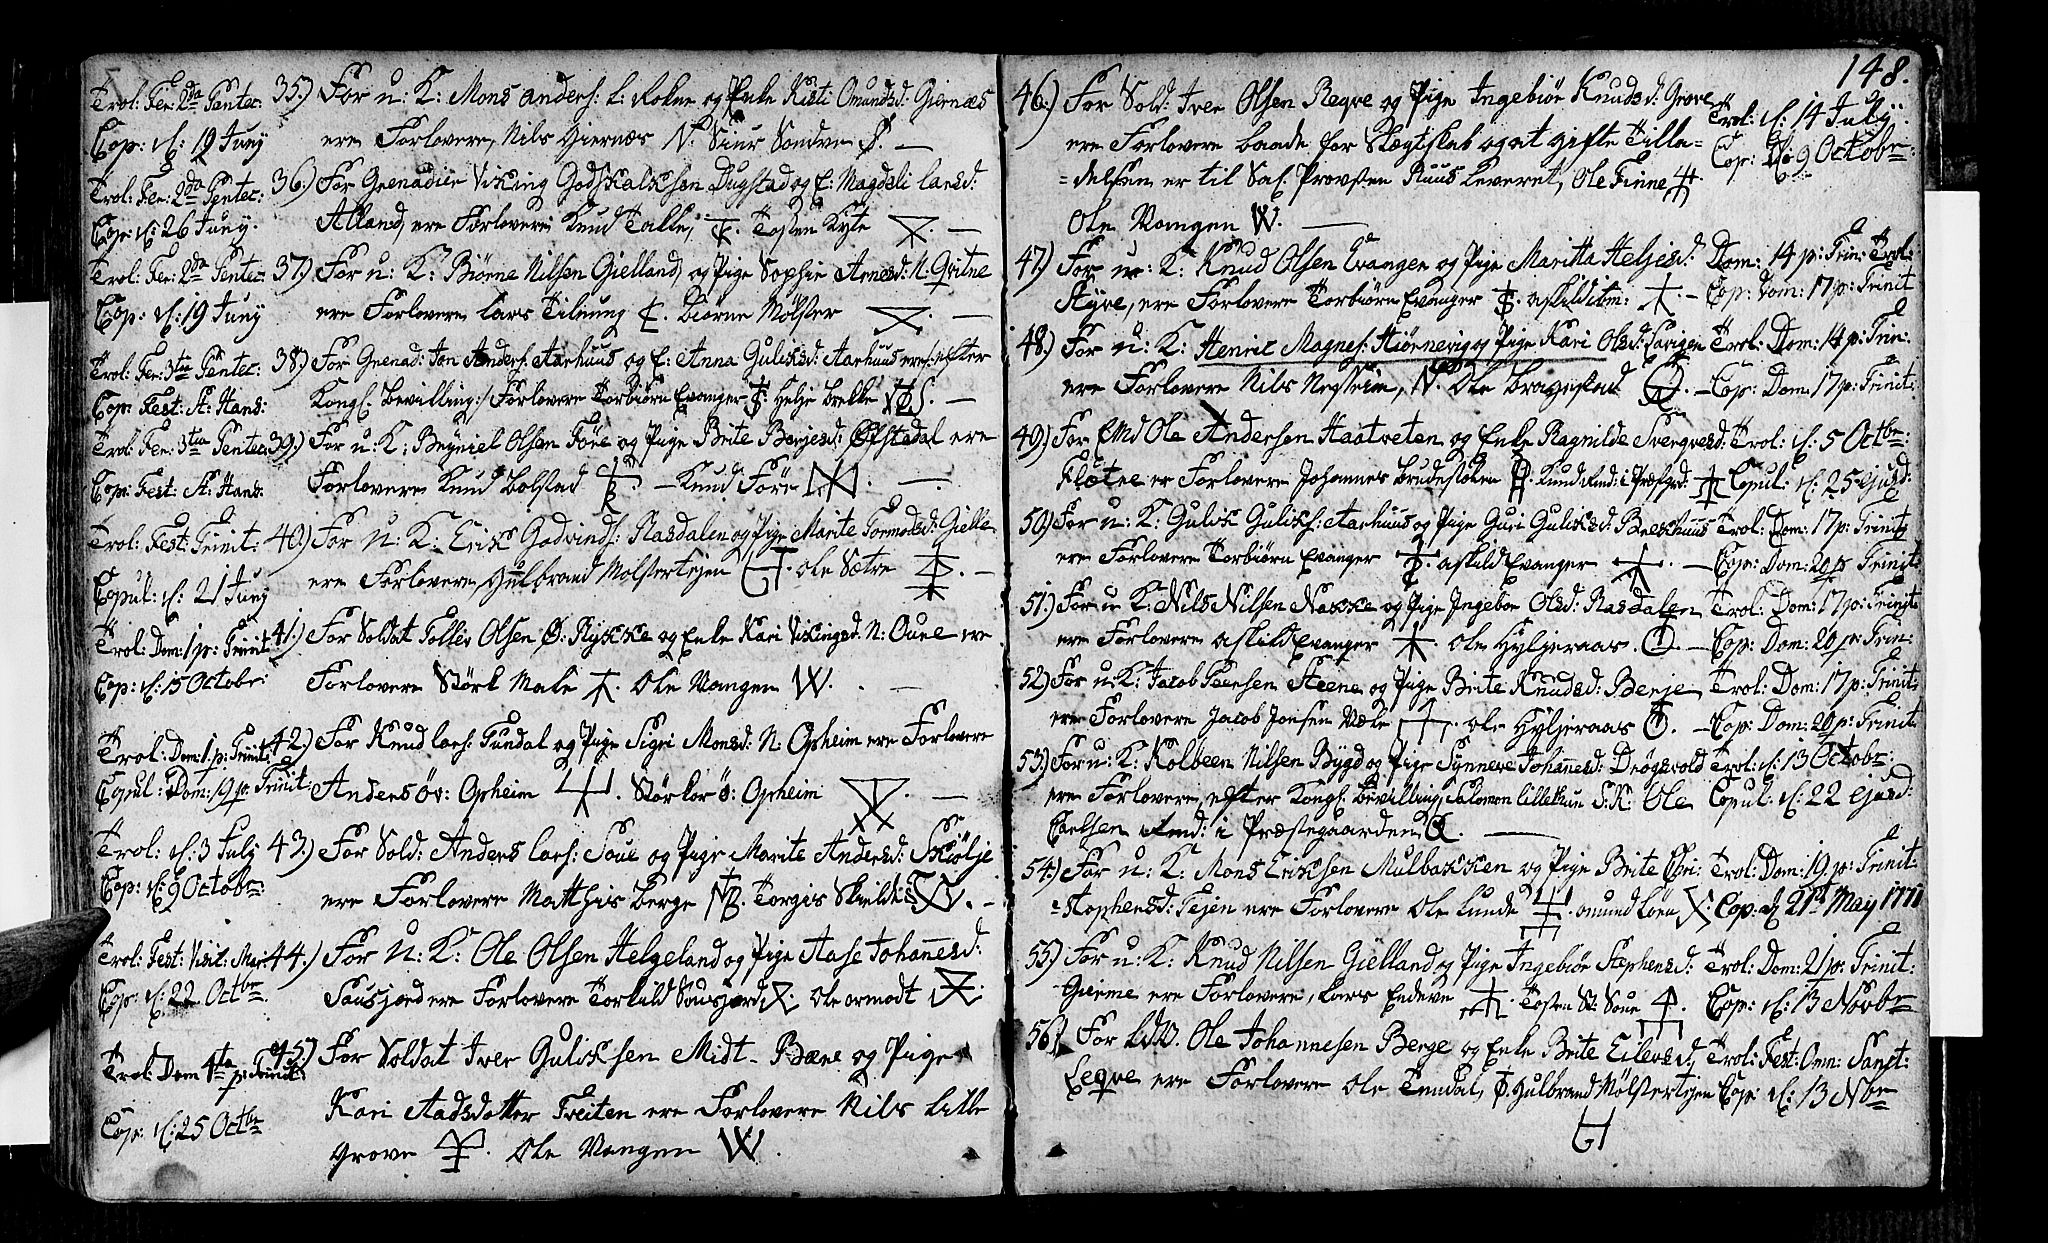 Trol: Fer: 2da Pentec: 35.) For u: K: Mons Anders: L: og Enke Kisti Omundsd: Giernæs
Cop: d: 19 Juny ere Forlovere, Nils Giernæs N. Siur Sondve S. —
Trol: Fer: 2da Pentec: 36.) For Grenadier Viking Godskalcksen Dugstad og E: Magdeli Larsd:
Cop: d: 26 Juny. Alland, ere Forlovere Knud Talle, Tosten Kyte —
Trol: Fer: 2da Pentec: 37.) For u: K: Biørne Nilsen Gielland, og Pige Sophie Arnesd: N: Qvitne
Cop: d: 19 Juny ere Forlovere Lars Tilnung Biørne Mølster —
Trol: Fer: 3tia Pentec: 38.) For Grenad: Jon Anders: Aarhuus og E: Anna Guliksd: Aarhuus ere /: efter
Cop: Fest: St: Hans: Kongl: Bevilling :/ Forlovere Torbiørn Evanger Helje Brekke —
Trol: Fer: 3tia Pentec: 39.) For u: K: Bryniel Olsen Føre og Pige Brite Børjesd: Øfstedal ere
Cop: Fest: St: Hans: Forlovere Knud Bolstad — Knud Føre —
Trol: Fest: Trinit: 40.) For u: K: Erik Godvinds: Rasdalen og Pige Marite Tormodsd: Gielle
Copul: d: 21 Juny ere Forlovere, Gulbrand Mølstertejen Ole Sætre —
Trol: Dom: 1 p: Trinit 41.) For Soldat Tollev Olsen Ø: Rykke og Enke Kari Vikingsd: N: Qule ere
Cop: d: 15 Octobr: Forlovere Størk Male Ole Vangen W. —
Trol: Dom: 1 p: Trinit: 42.) For Knud Lars: Tundal og Pige Sigri Monsd: N: Opheim ere Forlovere
Copul: Dom: 19 p: Trinit: Anders Øv: Opheim Størkor Ø: Opheim —
Trol: d: 3 July 43.) For Sold: Anders Lars: Soue og Pige Marite Andersd: Skiølje
Cop: d: 9 Octobr: ere Forlovere Matthis Berge Torgis Skielde —
Trol: Fest: Visit: Mar: 44.) For u: K: Ole Olsen Helgeland og Pige Aase Johannesd:
Cop: d: 22 Octbr Sausjord ere Forlovere Torkild Sausjord Ole Ormodt
Trol: Dom 4ta p: Trinit: 45.) For Soldat Iver Guliksen Midt-Bæne og Pige
Kari Aadsdatter Treiten ere Forlovere Nils Lille
Cop: d: 25 Octbr Grove Ole Vangen W.
148.
46.) For Sold: Iver Olsen Reqve og Pige Ingebiør Knudsd: Grove Trol: d: 14 July:
ere Forlovere baade for Slægtskab og at gifte Tilla= Cop: d: 9 Octobr:
=delsen er til Sal: Provsten Ruus leveret, Ole Finne
Ole Vangen W. —
47.) For u: K: Knud Olsen Evangen og Pige Maritta Heljesd: Dom: 14 p: Trin: Trol:
Styve, ere Forlovere Torbiørn Evanger Askild ibm: — Cop: Dom: 17 p: Trinit
48.) For u: K: Henrik Magnes: Hiørnevig og Pige Kari Olsd: Lavigen Trol: Dom: 14 p: Trin:
ere Forlovere Nils Nestein, N. Ole Bragestad — Cop: Dom: 17 p: Trinit:
49.) For Ole Andersen Haatveten og Enke Ragnilde Sverqvesd: Trol: d: 5 Octbr:
Kløtve er Forlovere Johannes Brudestolen Knud i Præfgrd: Copul: d: 25 ejusd:
50.) For u: K: Gulik Guliks: Aarhuus og Pige Guri Guliksd: Brekhuus Trol: Dom: 17 p: Trinit
ere Forlovere Torbiørn Evanger Askild Evanger — Cop: Dom: 20 p: Trinit
51.) For u K: Nils Nilsen Nakke og Pige Ingebor Olsd: Rasdalen Trol: Dom: 17 p: Trinit
ere Forlovere Askild Evanger Ole Hyljeraas. — Cop: Dom: 20 p: Trin:
52.) For u K: Jacob Iversen Steene og Pige Brite Knudsd: Berje Trol: Dom: 17 p: Trinit:
ere Forlovere Jacob Jonsen Væle Ole Hyljeraas — Cop: Dom: 20 p: Trinit
53.) For u: K: Kolbeen Nilsen Bygd og Pige Synneve Johannesd: Drøgsvold Trol: d: 13 Octobr:
ere Forlovere efter Kongl: Bevilling, Salomon Lillethun S. K: Ole Copul: d: 22 ejusd:
Carlsen i Præstegaarden —
54.) For u: K: Mons Erichsen Mulbakken og Pige Brite Chri: Trol: Dom: 19. p: Trinit:
=stophersd: Tejen ere Forlovere Ole Lunde Omund Løen X: Cop: d 21st May 1771
55.) For u: K: Knud Nilsen Gielland og Pige Ingebiør Stephensd: Trol: Dom: 21 p: Trinit:
Gierme ere Forlovere, Lars Endeve Tosten St: Soue Cop: d: 13 Novbr
56.) For Ole Johannesen Berge og Enke Brite Eilevsd: Trol: Fest: Omn: Sanct:
Leqve ere Forlovere Ole Tundal, Gulbrand Mølstertejen Cop: d: 13 Nbr